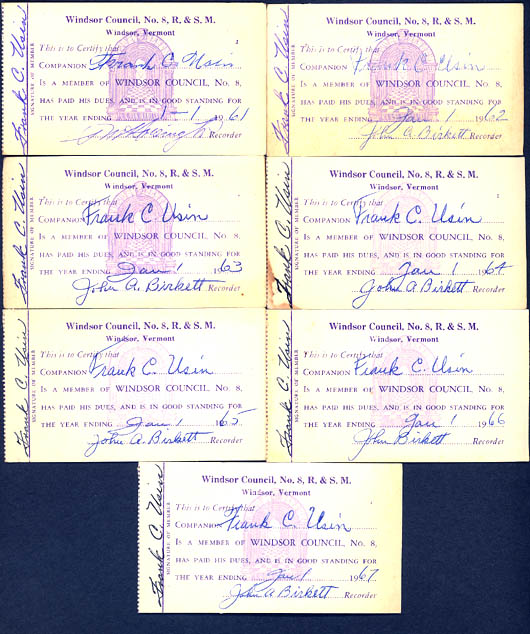 Windsor Council, No. 8, R. & S. M.
Windsor, Vermont
This is to Certify that
COMPANION Frank C. Usin
IS A MEMBER OF WINDSOR COUNCIL, NO. 8,
HAS PAID HIS DUES, AND IS IN GOOD STANDING FOR
THE YEAR ENDING 1-1 1961
Recorder
SIGNATURE OF MEMBER
Frank C. Usin
Windsor Council, No. 8, R. & S. M.
Windsor, Vermont
This is to Certify that
COMPANION Frank C Usin
IS A MEMBER OF WINDSOR COUNCIL, NO. 8,
HAS PAID HIS DUES, AND IS IN GOOD STANDING FOR
THE YEAR ENDING Jan 1 1962
John A. Birkett Recorder
SIGNATURE OF MEMBER
Frank C. Usin
Windsor Council, No. 8, R. & S. M.
Windsor, Vermont
This is to Certify that
COMPANION Frank C. Usin
IS A MEMBER OF WINDSOR COUNCIL, NO. 8,
HAS PAID HIS DUES, AND IS IN GOOD STANDING FOR
THE YEAR ENDING Jan 1 1963
John A. Birkett Recorder
SIGNATURE OF MEMBER
Frank C. Usin
Windsor Council, No. 8, R. & S. M.
Windsor, Vermont
This is to Certify that
COMPANION Frank C. Usin
IS A MEMBER OF WINDSOR COUNCIL, NO. 8,
HAS PAID HIS DUES, AND IS IN GOOD STANDING FOR
THE YEAR ENDING Jan 1 1964
John A. Birkett Recorder
SIGNATURE OF MEMBER
Frank C. Usin
Windsor Council, No. 8, R. & S. M.
Windsor, Vermont
This is to Certify that
COMPANION Frank C. Usin
IS A MEMBER OF WINDSOR COUNCIL, NO. 8,
HAS PAID HIS DUES, AND IS IN GOOD STANDING FOR
THE YEAR ENDING Jan 1 1965
John A. Birkett Recorder
SIGNATURE OF MEMBER
Frank C. Usin
Windsor Council, No. 8, R. & S. M.
Windsor, Vermont
This is to Certify that
COMPANION Frank C. Usin
IS A MEMBER OF WINDSOR COUNCIL, NO. 8,
HAS PAID HIS DUES, AND IS IN GOOD STANDING FOR
THE YEAR ENDING Jan 1 1966
John Birkett Recorder
SIGNATURE OF MEMBER
Frank C. Usin
Windsor Council, No. 8, R. & S. M.
Windsor, Vermont
This is to Certify that
COMPANION Frank C. Usin
IS A MEMBER OF WINDSOR COUNCIL, NO. 8,
HAS PAID HIS DUES, AND IS IN GOOD STANDING FOR
THE YEAR ENDING Jan 1 1967
John A Birkett Recorder
SIGNATURE OF MEMBER
Frank C. Usin